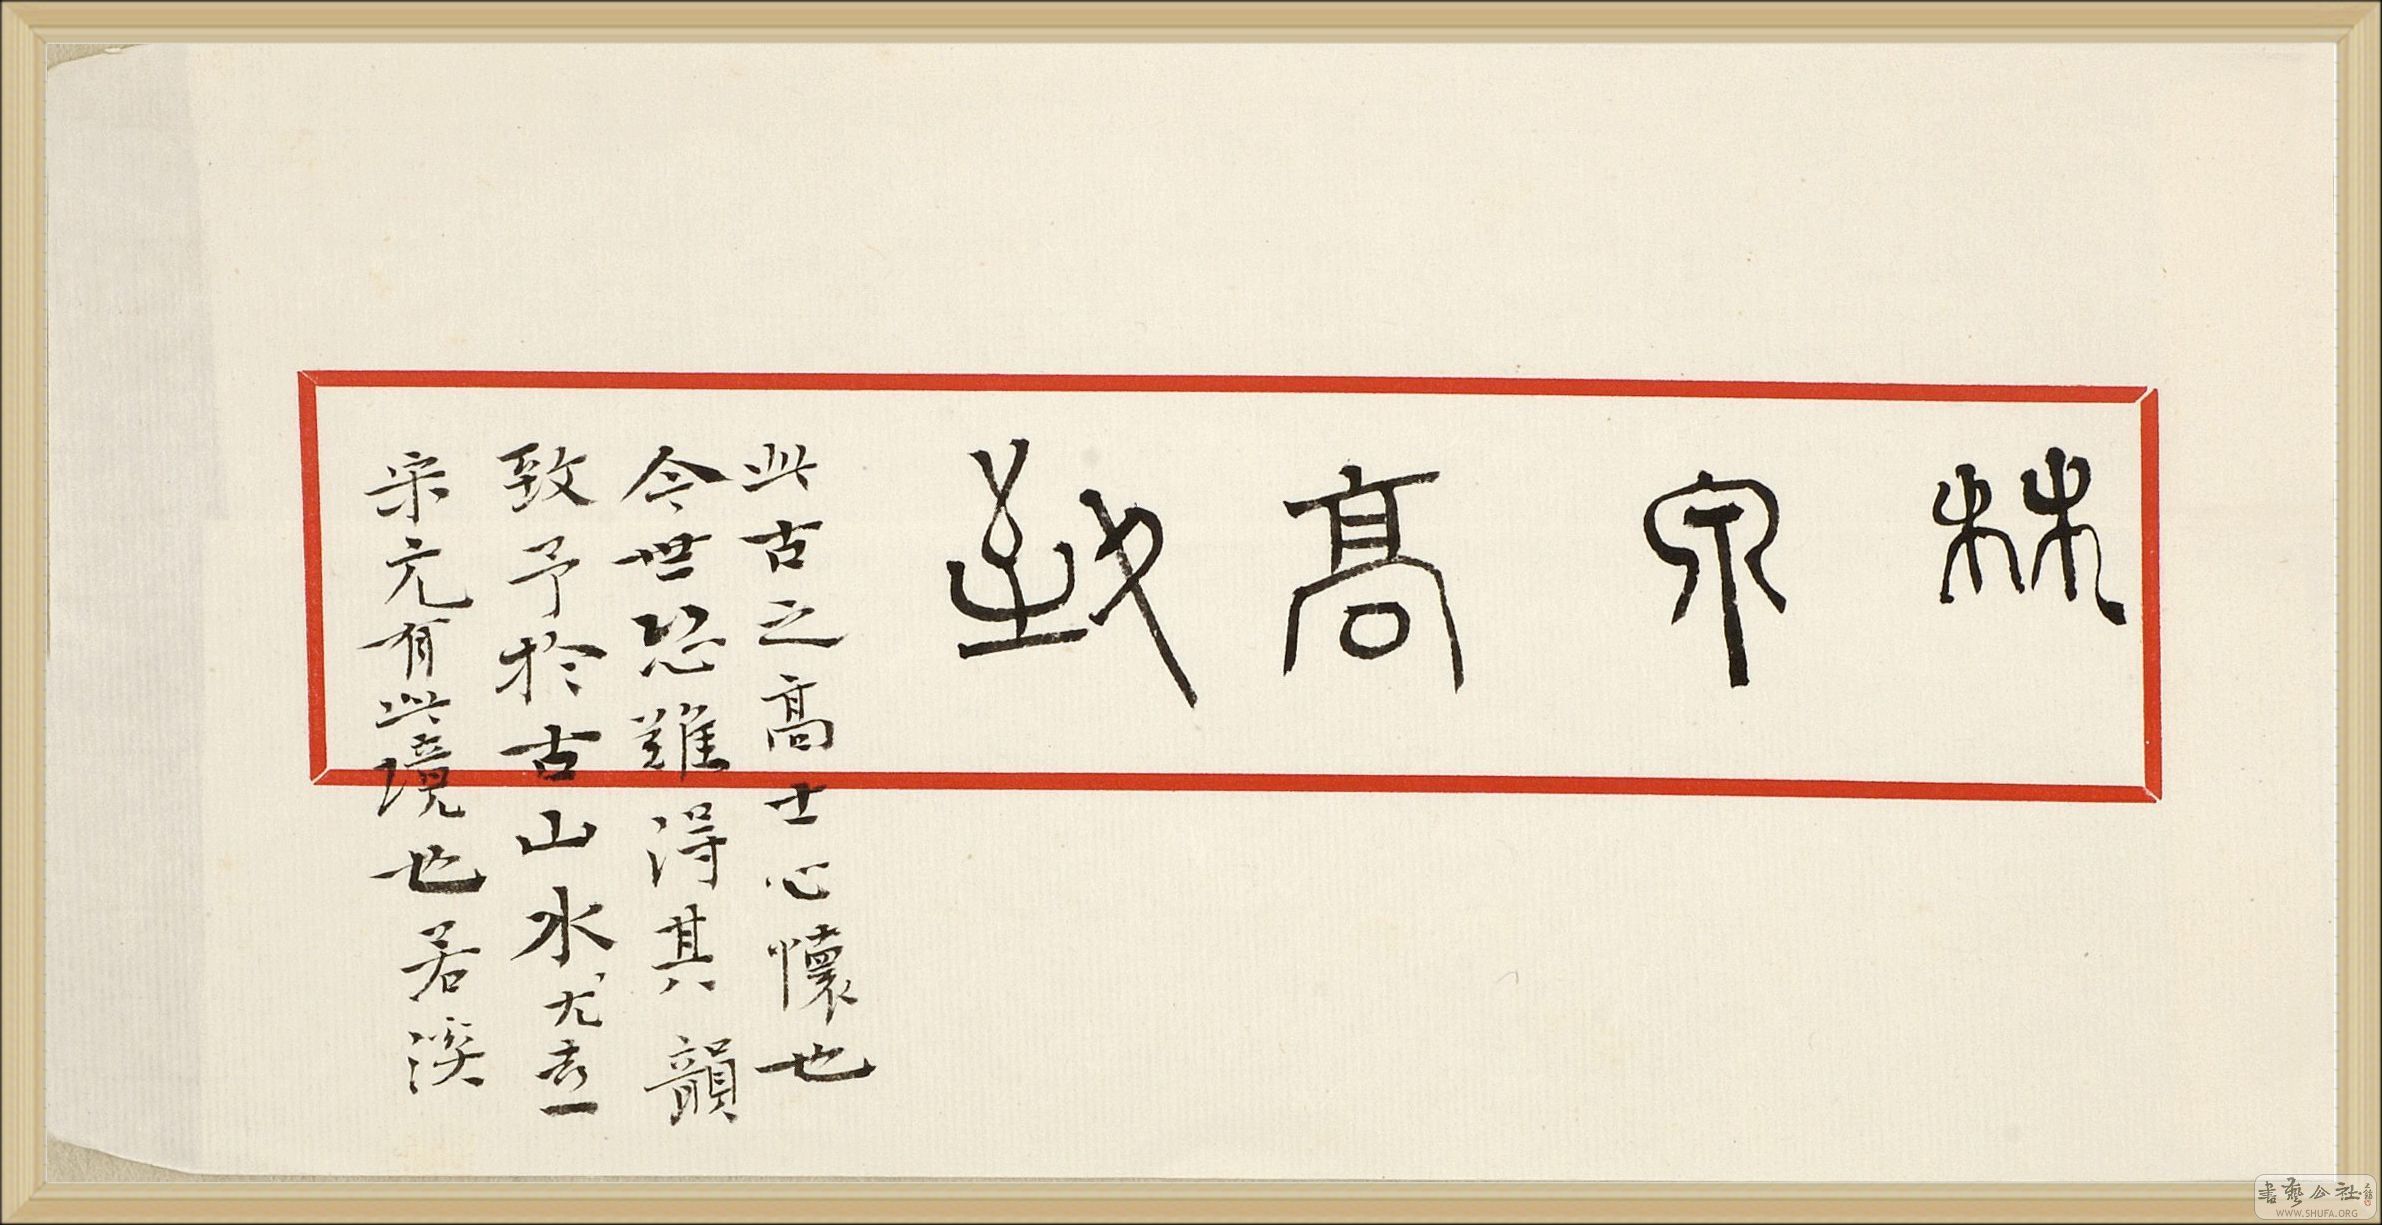 林泉高致
此古之高士心懷也
今世恐難得其韻
致予於古山水尤喜
宋元有此境也若溪
書藝公社
WWW.SHUFA.ORG